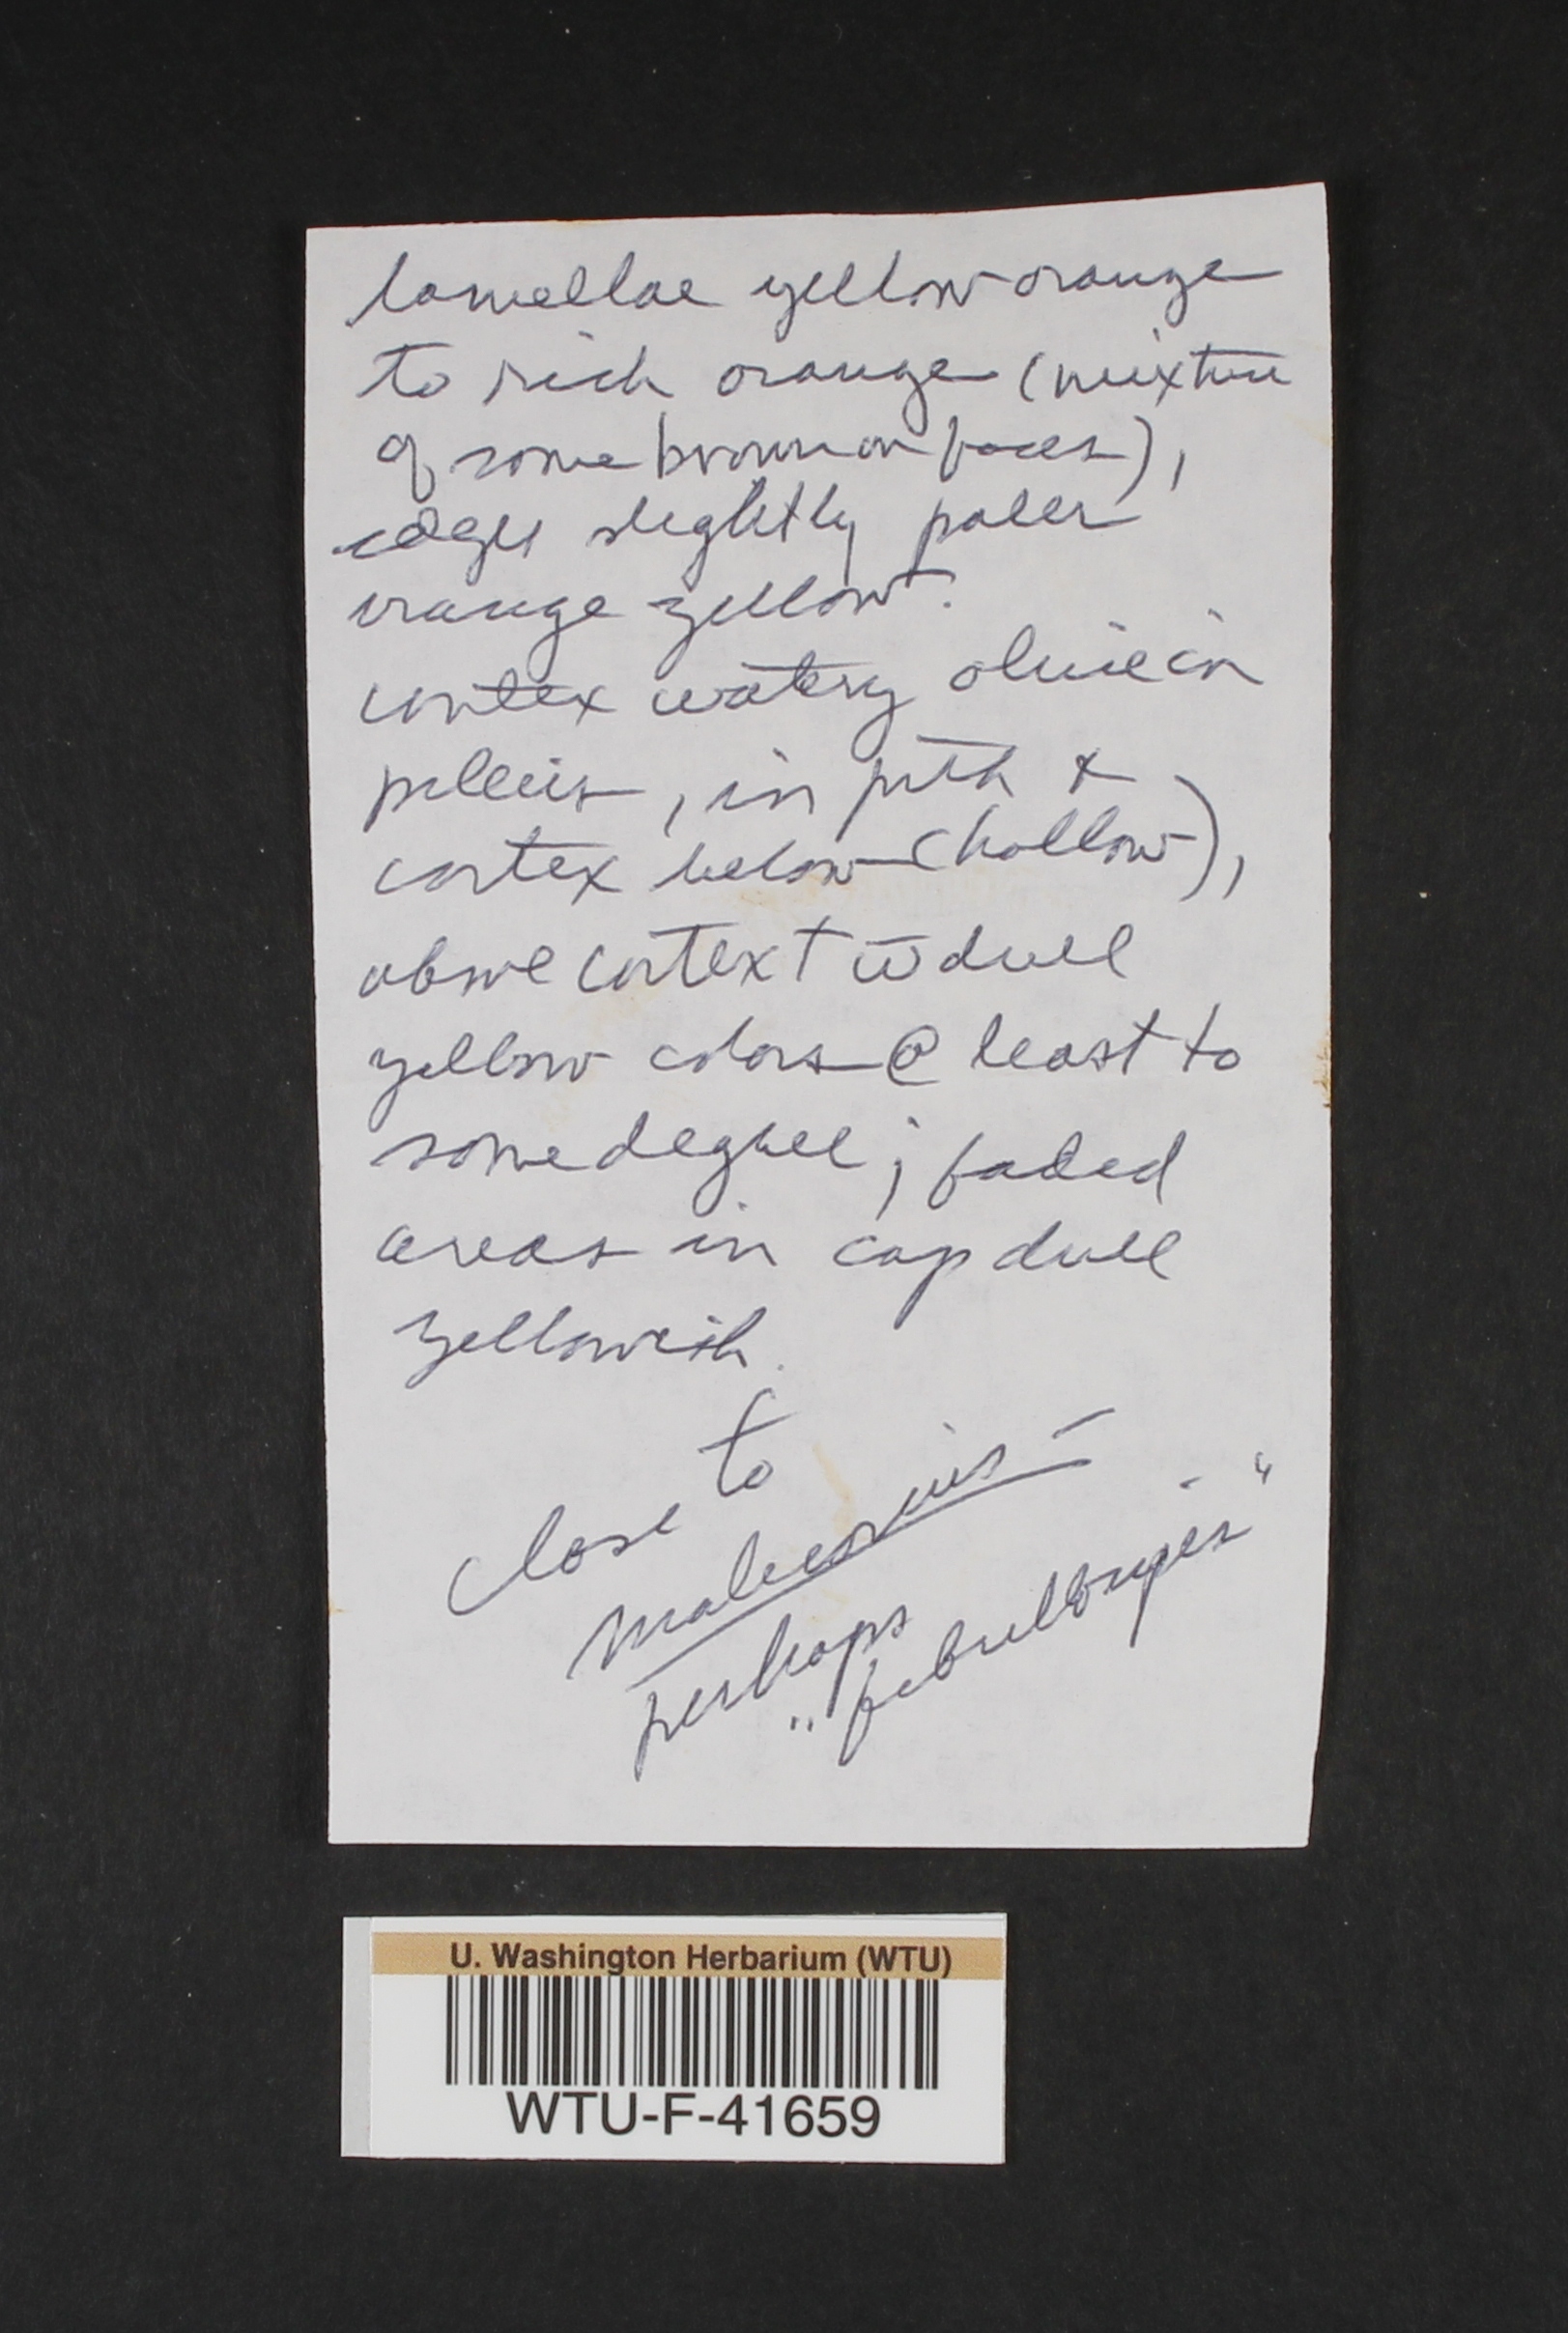 lamellae yellow-orange
to rich orange (mixture
of some brown on faces),
edges slightly paler
orange yellow.
cortex watery olive in
pileus, in pith &
cortex below (hollow),
above cortext w̄ dull
yellow colors @ least to
some degree; faded
areas in cap dull
yellowish.
close to
malicorius -
perhaps
"fibrillosipes"
U. Washington Herbarium (WTU)
WTU-F-41659